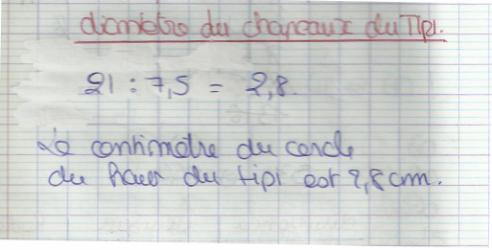 diamètre du chapeaux du TIPI.
21 : 7,5 = 2,8.
Le contimètre du cercle
du haut du tipi est 2,8 cm.